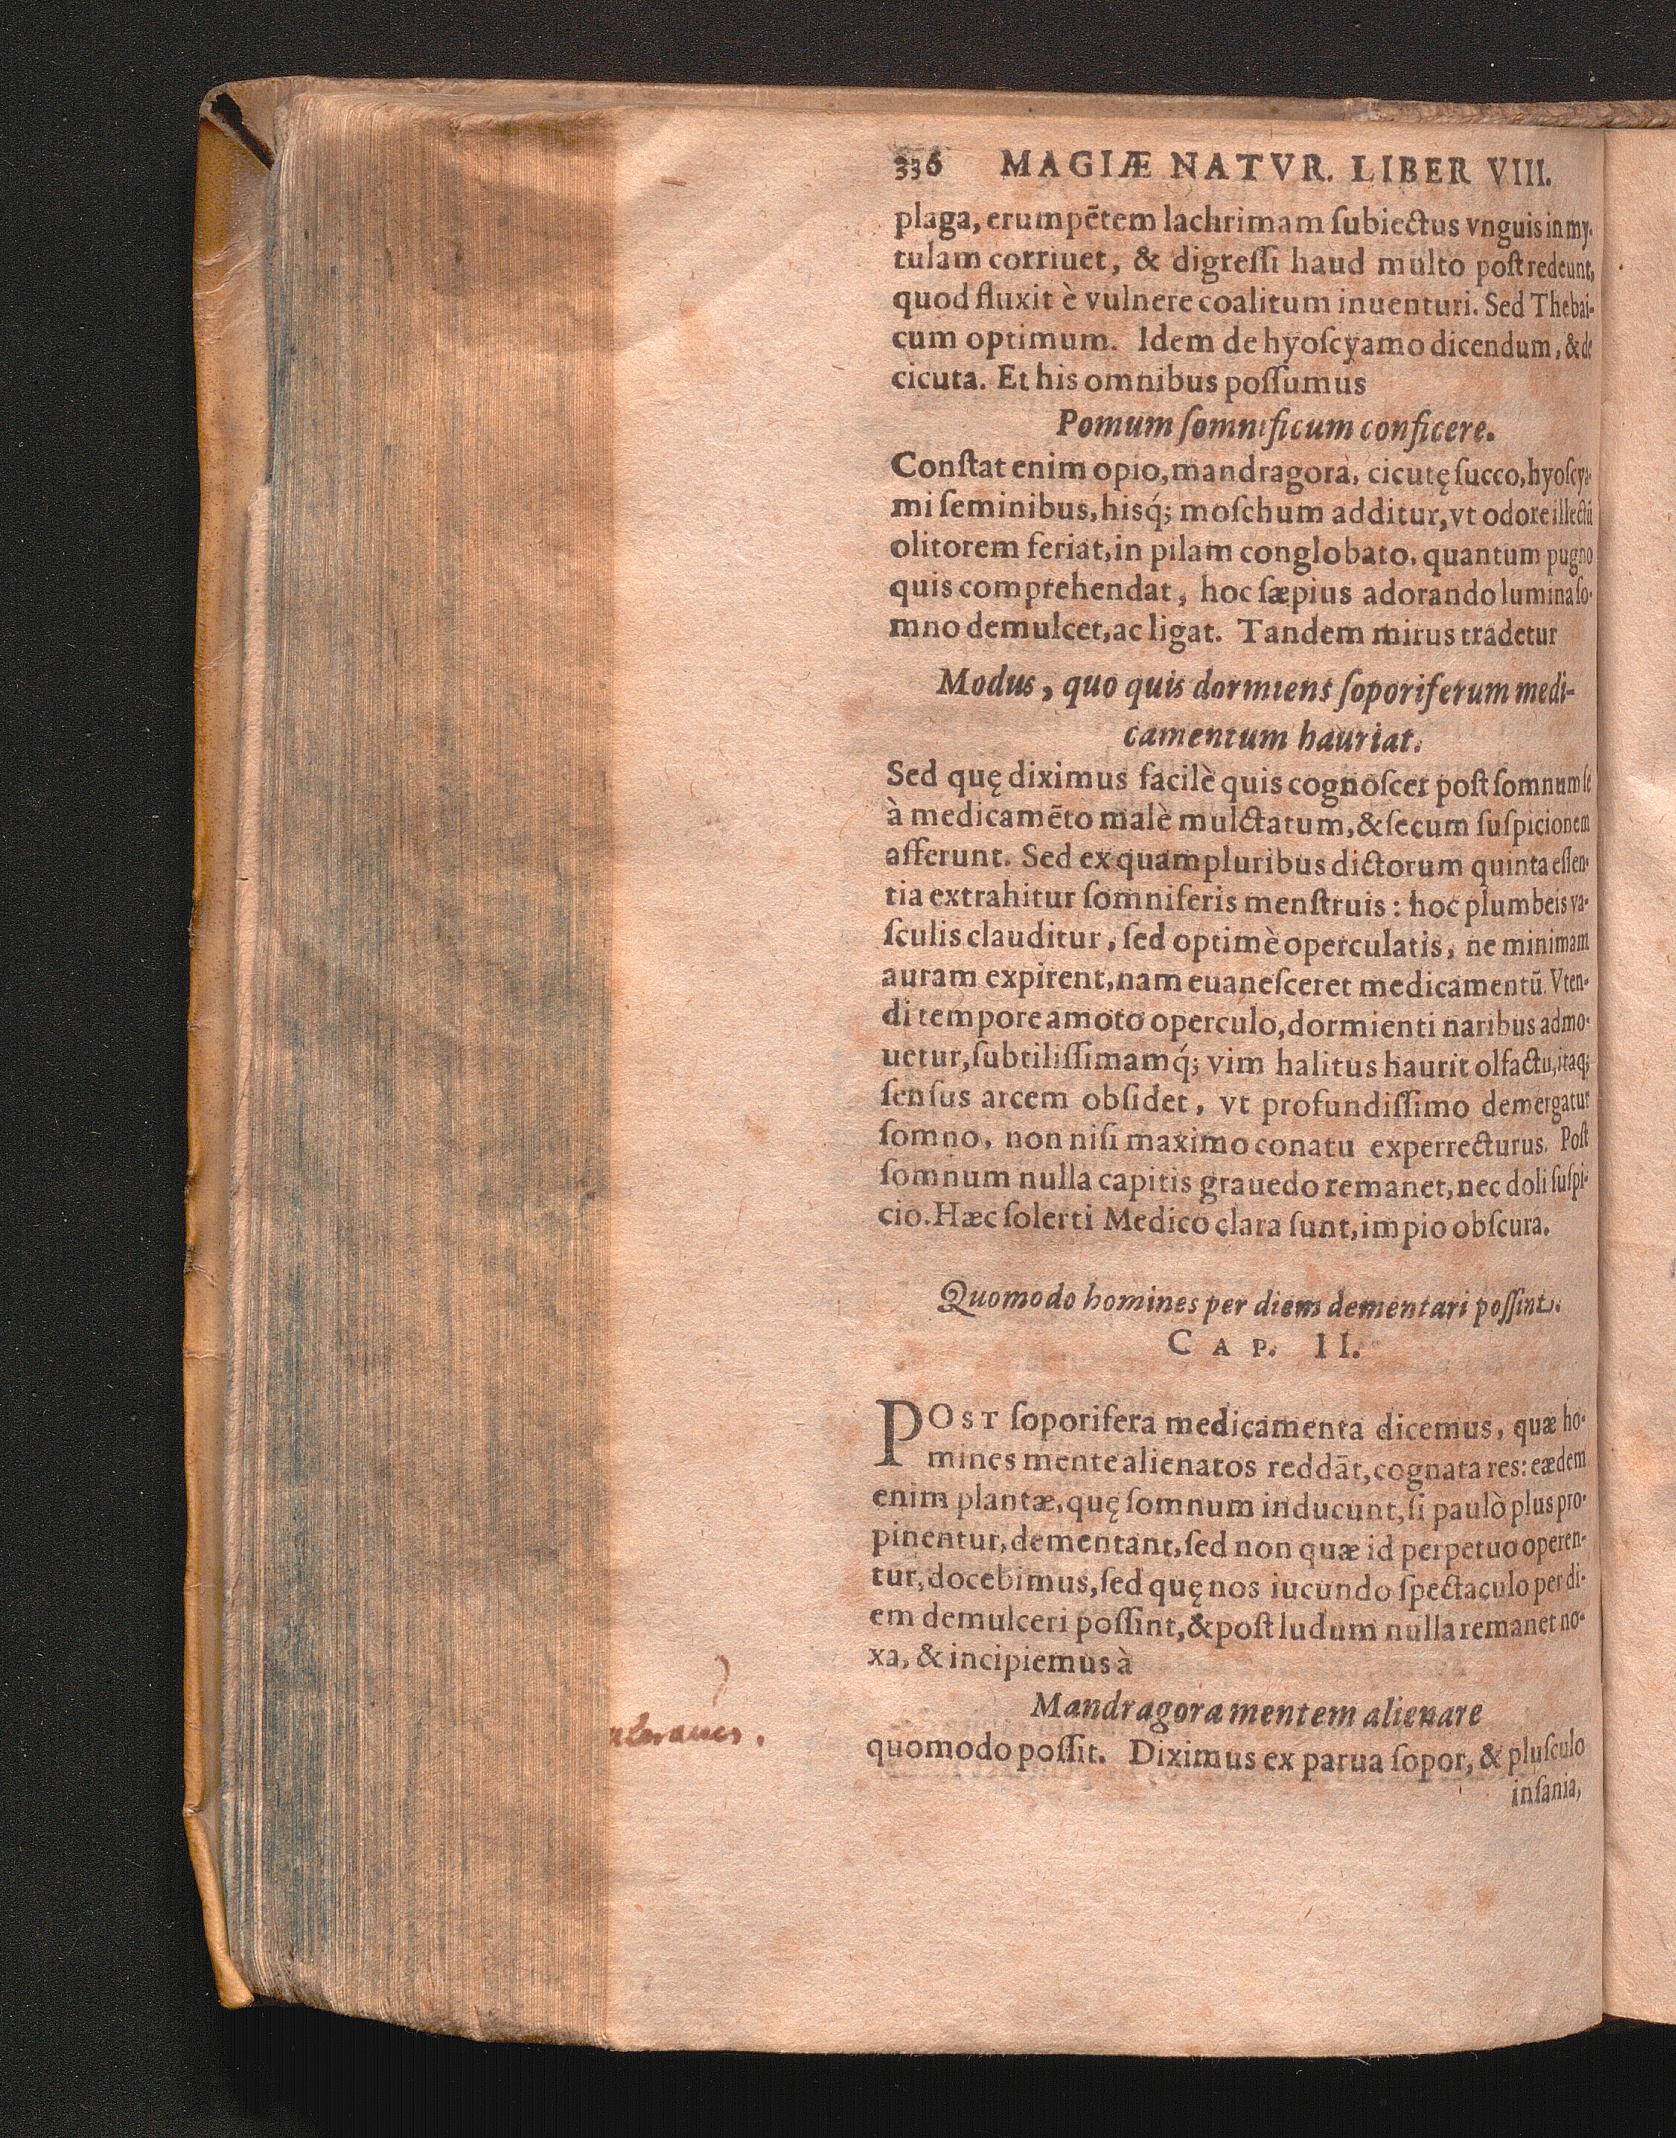 336 MAGIÆ NATVR. LIBER VIII.
plaga, erumpẽtem lachrimam ſubiectus vnguis in my-
tulam corriuet, & digreſſi haud multo poſt redeunt,
quod fluxit è vulnere coalitum inuenturi. Sed Thebai-
cum optimum. Idem de hyoſcyamo dicendum, & de
cicuta. Et his omnibus poſſumus
Pomum ſomnificum conficere.
Conſtat enim opio, mandragora, cicutę ſucco, hyoſcya-
mi ſeminibus, hisq́; moſchum additur, vt odore illectũ
olitorem feriat, in pilam conglobato. quantum pugno
quis comprehendat, hoc ſæpius adorando lumina ſo-
mno demulcet, ac ligat. Tandem mirus tradetur
Modus, quo quis dormiens ſoporiferum medi-
camentum hauriat.
Sed quę diximus facilè quis cognoſcet poſt ſomnum ſe
à medicamẽto malè mulctatum, & ſecum ſuſpicionem
afferunt. Sed ex quampluribus dictorum quinta eſſen-
tia extrahitur ſomniferis menſtruis: hoc plumbeis va-
ſculis clauditur, ſed optimè operculatis, ne minimam
auram expirent, nam euaneſceret medicamentũ. Vten-
di tempore amoto operculo, dormienti naribus admo-
uetur, ſubtiliſſimamq́; vim halitus haurit olfactu, itaq;
ſenſus arcem obſidet, vt profundiſſimo demergatur
ſomno, non niſi maximo conatu experrecturus. Poſt
ſomnum nulla capitis grauedo remanet, nec doli ſuſpi-
cio. Hæc ſolerti Medico clara ſunt, impio obſcura.
Quomodo homines per diem dementari poſſint.
CAP. II.
POST ſoporifera medicamenta dicemus, quæ ho-
mines mente alienatos reddãt, cognata res: eædem
enim plantæ, quę ſomnum inducunt, ſi paulò plus pro-
pinentur, dementant, ſed non quæ id perpetuo operen-
tur, docebimus, ſed quę nos iucundo ſpectaculo per di-
em demulceri poſſint, & poſt ludum nulla remanet no-
xa, & incipiemus à
Mandragora mentem alienare
quomodo poſſit. Diximus ex parua ſopor, & pluſculo
inſania,